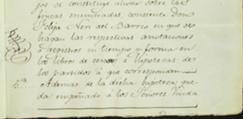 jos se constituye ahora sobre las
fincas enunciadas consiente Don
Felipe Neri del Barrio en que se
hagan las respectivas anotaciones
en tiempo y forma en
los libros de censos e hipotecas de
los partidos a que correspondan
6a. Ademas de la dicha hipoteca queda
a los Señores